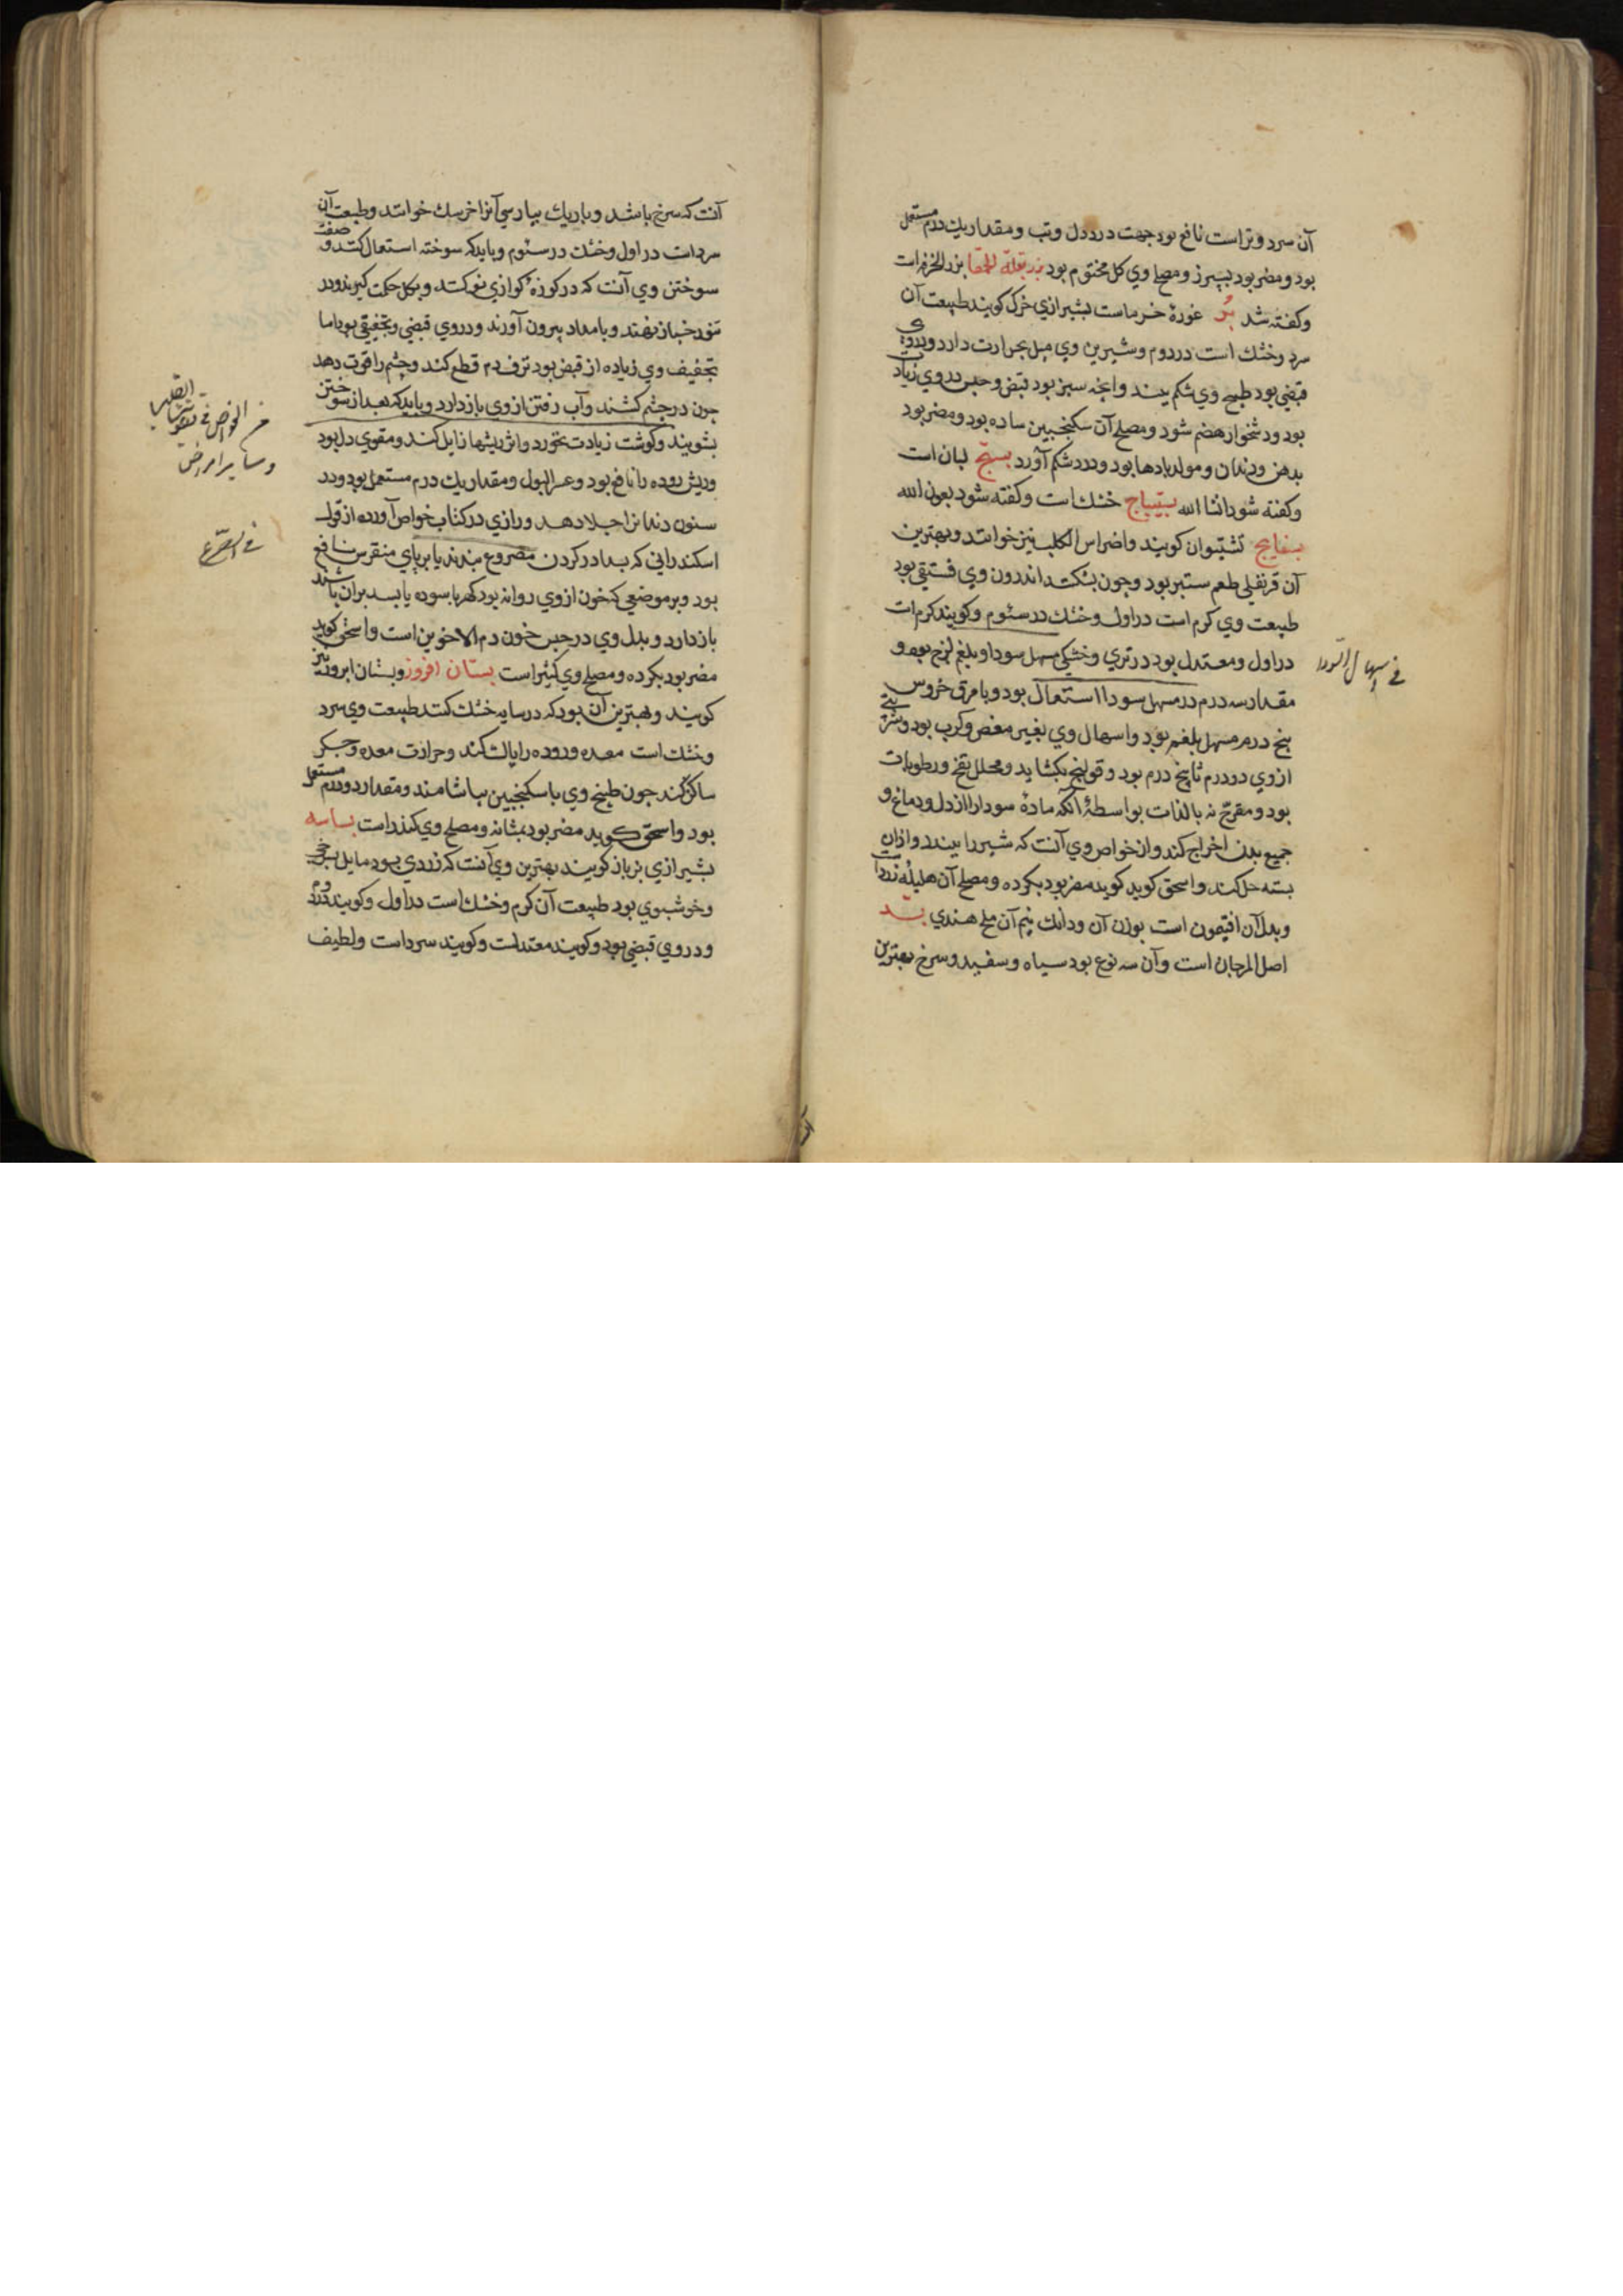 آن سرد و تر است نافع بود جهت درد دل و تب و مقدار یک درم مستعمل
بود و مضر بود بسپرز و مصلح وی کل مختوم بود بزر بقلة الحمقا بزر الخرفه است
و کفته شد بسر غورهٔ خرماست بشیرازی خرک کویند طبیعت آن
سرد و خشک است در دوم و شیرین وی میل بحرارت دارد و در وی
قبضی بود طبیخ وی شکم ببندد و انچه سبز بود قبض و حبس در وی زیاد
بود و دشخوار هضم شود و مصلح آن سکنجبین ساده بود و مضر بود
بدهن و دندان و مولد بادها بود و درد شکم آورد بستج لبان است
و کفته شود انشا الله بستیباج خشک است و کفته شود بعون الله
بسفایج تشتیوان کویند و اضراس الکلب نیز خوانند و بهترین
آن قرنفلی طعم ستبر بود و جون بشکنند اندرون وی فستقی بود
طبیعت وی کرم است در اول و خشک در سئوم و کویند کرم است
در اول و معتدل بود در تری و خشکی مسهل سودا و بلغم لزج بود و
فی اسهال السودا
مقدار سه درم در مسهل سودا استعمال بود و با مرق خروس
پنج درم مسهل بلغم بود و اسهال وی بغیر مغص و کرب بود و شربتی
از وی دو درم تا پنج درم بود و قولنج بکشاید و محلل نفخ و رطوبات
بود و مفرح نه بالذات بواسطهٔ آنکه مادهٔ سودا را از دل و دماغ و
جمیع بدن اخراج کند و از خواص وی آنست که شیر را ببندد و از ان
بسته حل کند و اسحق کوید کوید مضر بود بکرده و مصلح آن هلیلهٔ زرد است
و بدل آن افتیمون است بوزن آن و دانک نیم آن ملح هندی بسد
اصل المرجان است و آن سه نوع بود سیاه و سفید و سرخ بهترین
آنست که سرخ باشد و باریک بپارسی آنرا خرسک خوانند و طبیعت آن
سرد است در اول و خشک در سئوم و باید که سوخته استعمال کنند و صفت
سوختن وی آنست که در کوزهٔ کوازی نو کنند و بکل حکمت کیرند و در
تنور خباز نهند و بامداد بیرون آورند و در وی قبضی و تجفیفی بود اما
تجفیف وی زیاده از قبض بود نزف دم قطع کند و جشم را قوت دهد
جون در جشم کشند و آب رفتن از وی باز دارد و باید که بعد از سوختن
بشویند و کوشت زیادت بخورد و اثر ریشها زایل کند و مقوی دل بود
الخواص فی تقویة القلب
و سایر امراض
و ریش روده را نافع بود و عسر البول و مقدار یک درم مستعمل بود و در
سنون دندانرا جلا دهد و رازی در کتاب خواص آورده از قول
اسکندرانی که بسد در کردن مصروع بندند یا بر پای منقرس نافع
فی الصرع
بود و بر موضعی که خون از وی روانه بود کهربا سوده یا بسد بر ان باشند
باز دارد و بدل وی در حبس خون دم الاخوین است و اسحق کوید
مضر بود بکرده و مصلح وی کثیراست بستان افروز و بستان ابروز نیز
کویند و بهترین آن بود که در سایه خشک کنند طبیعت وی سرد
و خشک است معده و روده را پاک کند و حرارت معده و جکر
ساکن کند جون طبیخ وی با سکنجبین بیاشامند و مقدار دو درم مستعمل
بود و اسحق کوید مضر بود بمثانه و مصلح وی کندر است بسباسه
بشیرازی بزباز کویند بهترین وی آنست که زردی بود مایل بسرخی
و خوشبوی بود طبیعت آن کرم و خشک است در اول و کویند در دوم
و در وی قبضی بود و کویند معتدلست و کویند سرد است و لطیف